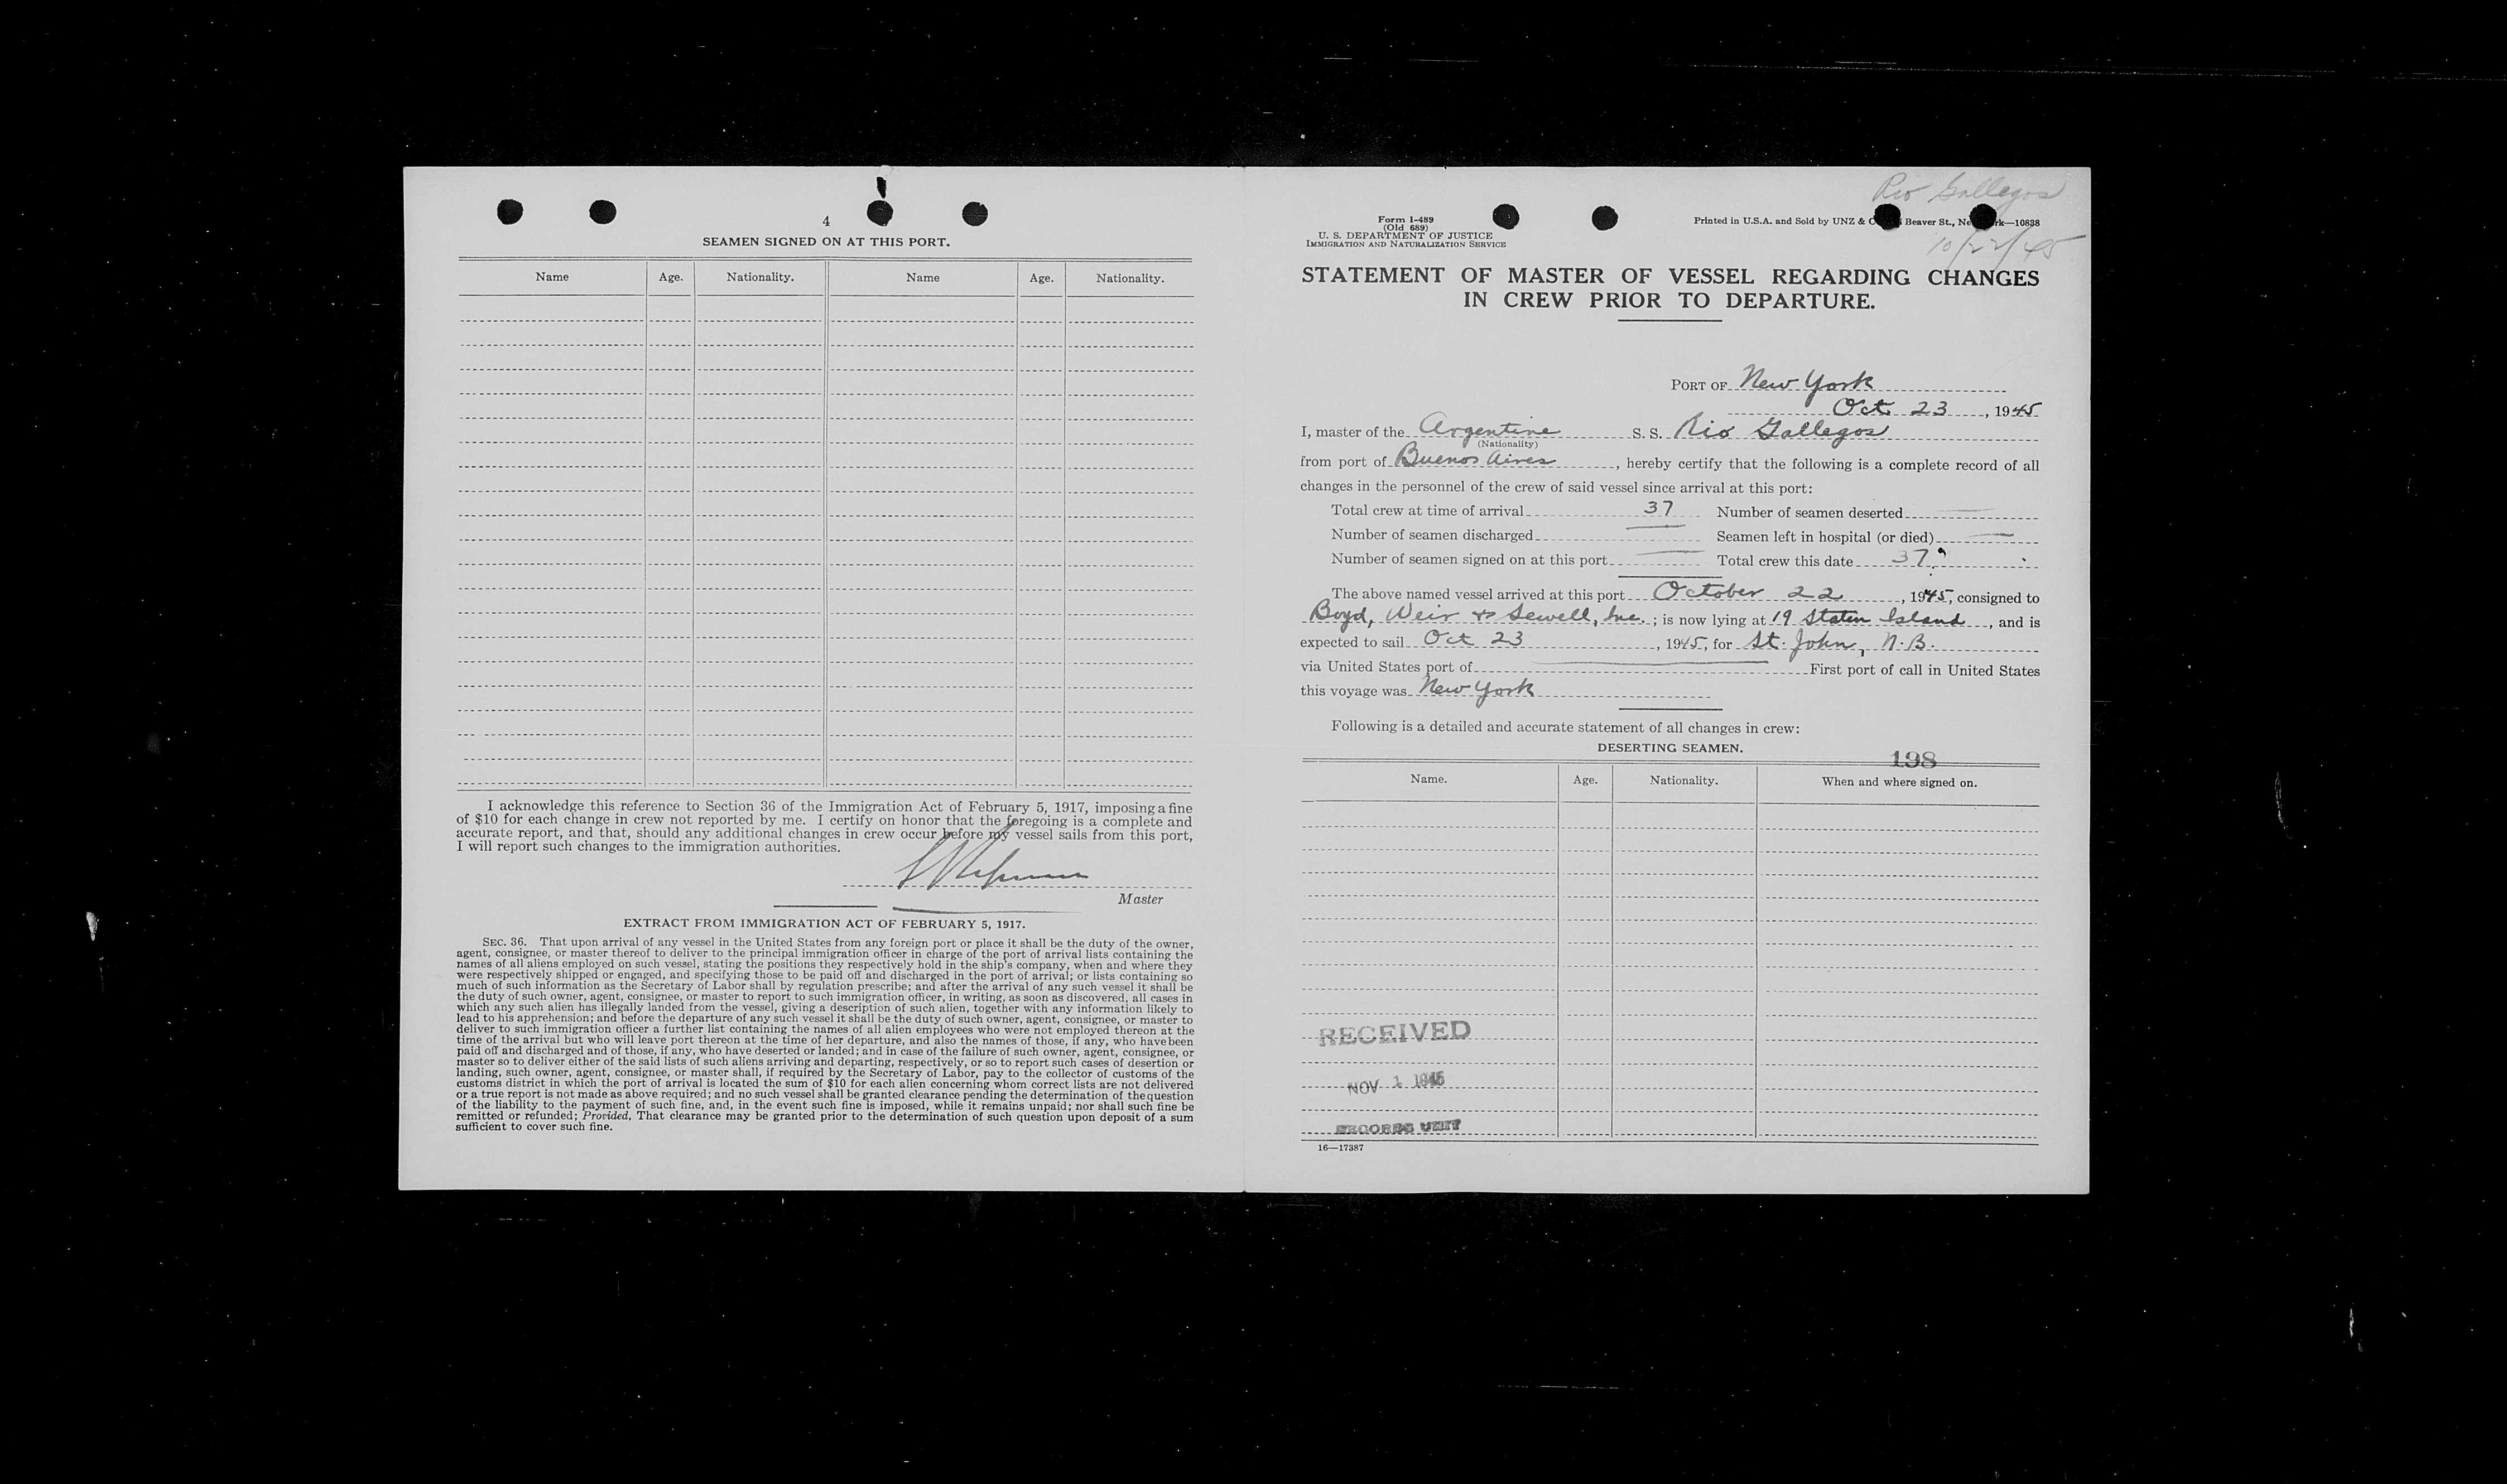 4
SEAMEN SIGNED ON AT THIS PORT.
Name Age. Nationality. Name Age. Nationality.
I acknowledge this reference to Section 36 of the Immigration Act of February 5, 1917, imposing a fine
of $10 for each change in crew not reported by me. I certify on honor that the foregoing is a complete and
accurate report, and that, should any additional changes in crew occur before my vessel sails from this port,
I will report such changes to the immigration authorities.
Master
EXTRACT FROM IMMIGRATION ACT OF FEBRUARY 5, 1917.
SEC. 36. That upon arrival of any vessel in the United States from any foreign port or place it shall be the duty of the owner,
agent, consignee, or master thereof to deliver to the principal immigration officer in charge of the port of arrival lists containing the
names of all aliens employed on such vessel, stating the positions they respectively hold in the ship's company, when and where they
were respectively shipped or engaged, and specifying those to be paid off and discharged in the port of arrival; or lists containing so
much of such information as the Secretary of Labor shall by regulation prescribe; and after the arrival of any such vessel it shall be
the duty of such owner, agent, consignee, or master to report to such immigration officer, in writing, as soon as discovered, all cases in
which any such alien has illegally landed from the vessel, giving a description of such alien, together with any information likely to
lead to his apprehension; and before the departure of any such vessel it shall be the duty of such owner, agent, consignee, or master to
deliver to such immigration officer a further list containing the names of all alien employees who were not employed thereon at the
time of the arrival but who will leave port thereon at the time of her departure, and also the names of those, if any, who have been
paid off and discharged and of those, if any, who have deserted or landed; and in case of the failure of such owner, agent, consignee, or
master so to deliver either of the said lists of such aliens arriving and departing, respectively, or so to report such cases of desertion or
landing, such owner, agent, consignee, or master shall, if required by the Secretary of Labor, pay to the collector of customs of the
customs district in which the port of arrival is located the sum of $10 for each alien concerning whom correct lists are not delivered
or a true report is not made as above required; and no such vessel shall be granted clearance pending the determination of the question
of the liability to the payment of such fine, and, in the event such fine is imposed, while it remains unpaid; nor shall such fine be
remitted or refunded; Provided, That clearance may be granted prior to the determination of such question upon deposit of a sum
sufficient to cover such fine.
Rio Gallegos
Form I-489
(Old 689)
U. S. DEPARTMENT OF JUSTICE
IMMIGRATION AND NATURALIZATION SERVICE
Printed in U.S.A. and Sold by UNZ & Beaver St., —10838
10/22/45
STATEMENT OF MASTER OF VESSEL REGARDING CHANGES
IN CREW PRIOR TO DEPARTURE.
PORT OF New York
Oct. 23, 1945
I, master of the Argentine S. S. Rio Gallegos
(Nationality)
from port of Buenos Aires, hereby certify that the following is a complete record of all
changes in the personnel of the crew of said vessel since arrival at this port:
Total crew at time of arrival 37 Number of seamen deserted —
Number of seamen discharged — Seamen left in hospital (or died) —
Number of seamen signed on at this port — Total crew this date 37
The above named vessel arrived at this port October 22, 1945, consigned to
Boyd, Weir & Sewell, Inc.; is now lying at 19 Staten Island, and is
expected to sail Oct 23, 1945, for St. John, N.B.
via United States port of — First port of call in United States
this voyage was New York
Following is a detailed and accurate statement of all changes in crew:
DESERTING SEAMEN.
198
Name. Age. Nationality. When and where signed on.
RECEIVED
NOV 1 1945
RECORDS UNIT
16—17387